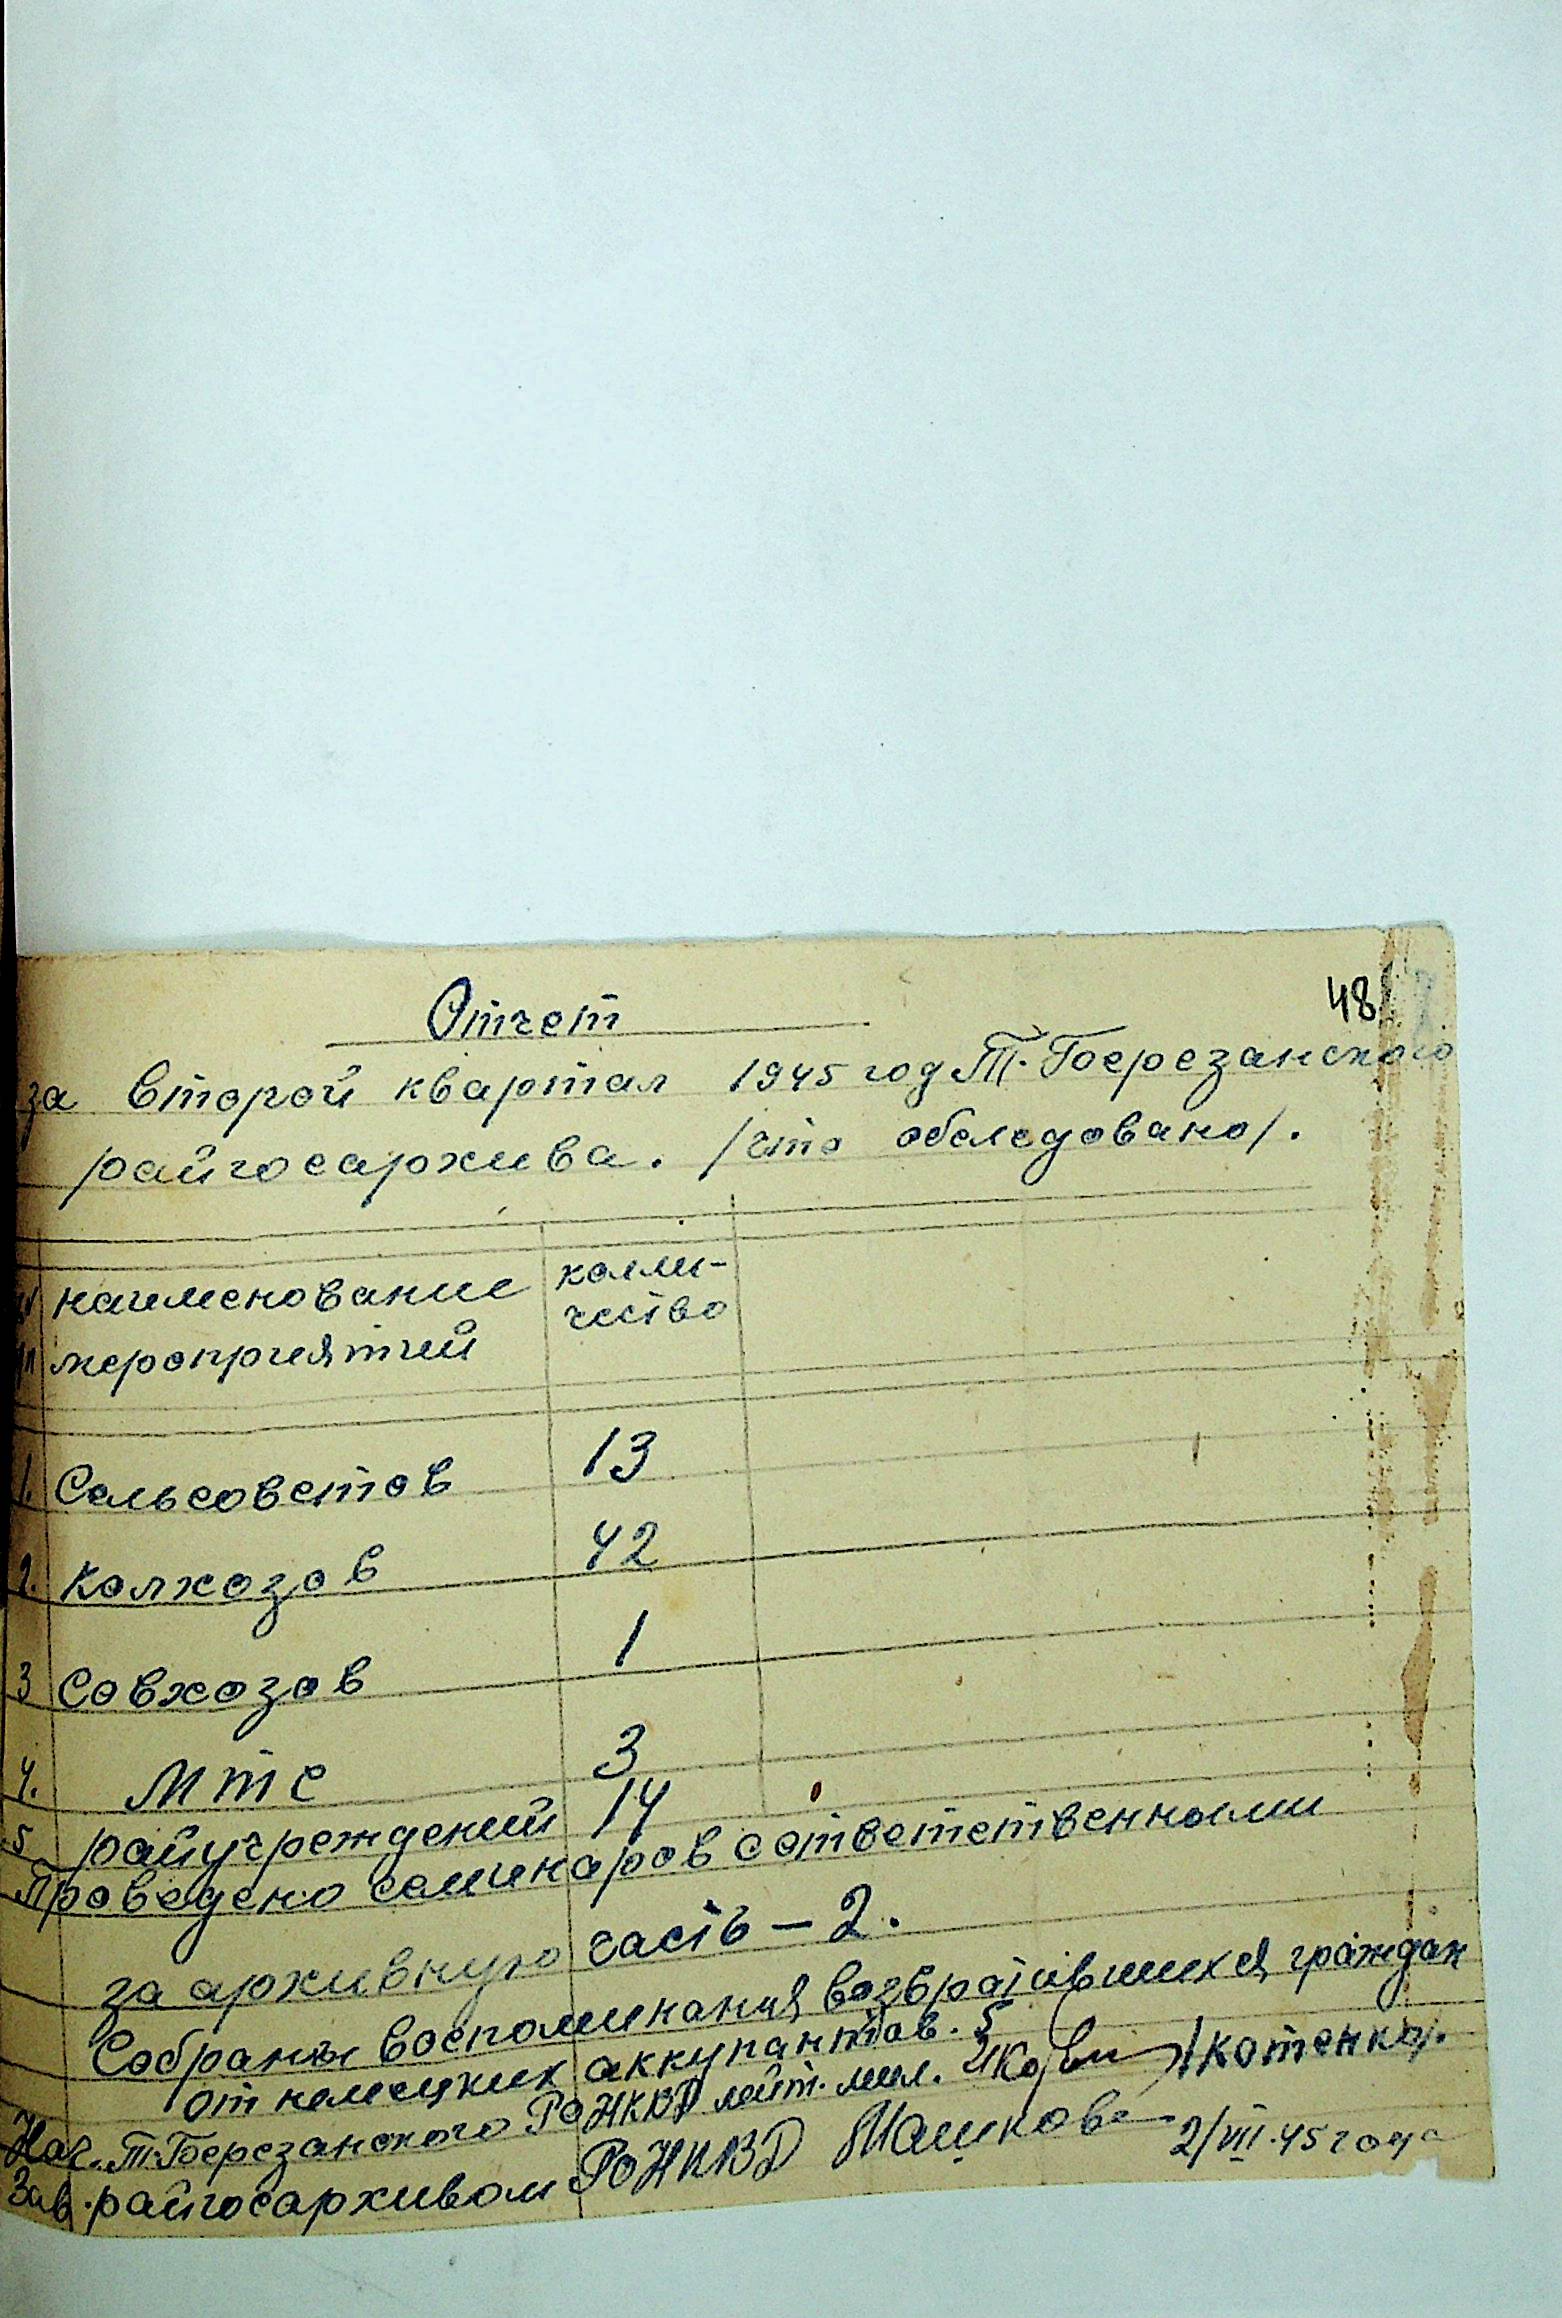 48
Отчет
за второй квартал 1945 год Т. Березанского
райгосархива. /что обследовано/.
наименование колли-
мероприятий чество
1. Сельсоветов 13
2. Колхозов 42
3 Совхозов 1
4. МТС 3
5 райучреждений 14
Проведено семинаров с ответственными
за архивную часть – 2.
Собраны воспоминания возвратившихся граждан
от немецких аккупантов. 5
Нач. Т. Березанского РО НКВД лейт. мил. /Котенко/.
Зав. райгосархивом РО НКВД Машкова
2/VII.45 года